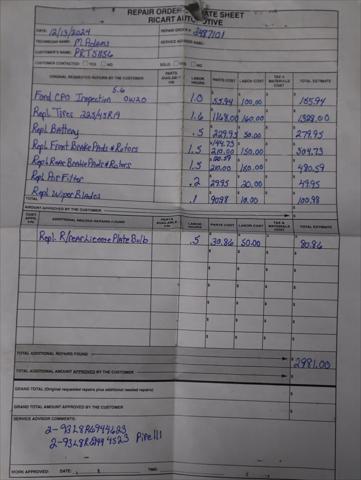 REPAIR ORDER ESTIMATE SHEET
RICART AUTOMOTIVE
DATE: 12/13/2024 REPAIR ORDER #: 2487101
TECHNICIAN NAME: M Adams SERVICE ADVISOR NAME:
CUSTOMER'S NAME: PRT51156
CUSTOMER CONTACTED: YES NO SOLD: YES NO
ORIGINAL REQUESTED REPAIR BY THE CUSTOMER PARTS AVAILABLE LABOR HOURS PARTS COST LABOR COST TAX & MATERIALS COST TOTAL ESTIMATE
5.6
Ford CPO Inspection 0W20 1.0 55.94 100.00 155.94
Repl. Tires 225/45R19 1.6 1168.00 160.00 1328.00
Repl. Battery .5 229.95 50.00 279.95
Repl Front Brake Pads & Rotors 1.5 144.73 210.00 150.00 504.73
Repl Rear Brake Pads & Rotors 1.5 120.59 210.00 150.00 480.59
Repl Air Filter .2 29.95 20.00 49.95
Repl Wiper Blades .1 90.98 10.00 100.98
TOTAL
AMOUNT APPROVED BY THE CUSTOMER
ADDITIONAL NEEDED REPAIRS FOUND PARTS AVAILABLE LABOR HOURS PARTS COST LABOR COST TAX & MATERIALS COST TOTAL ESTIMATE
Repl. R/rear License Plate Bulb .5 30.86 50.00 80.86
TOTAL ADDITIONAL REPAIRS FOUND 2981.00
TOTAL ADDITIONAL AMOUNT APPROVED BY THE CUSTOMER
GRAND TOTAL (Original requested repairs plus additional needed repairs)
GRAND TOTAL AMOUNT APPROVED BY THE CUSTOMER
SERVICE ADVISOR COMMENTS:
WORK APPROVED: DATE: TIME: